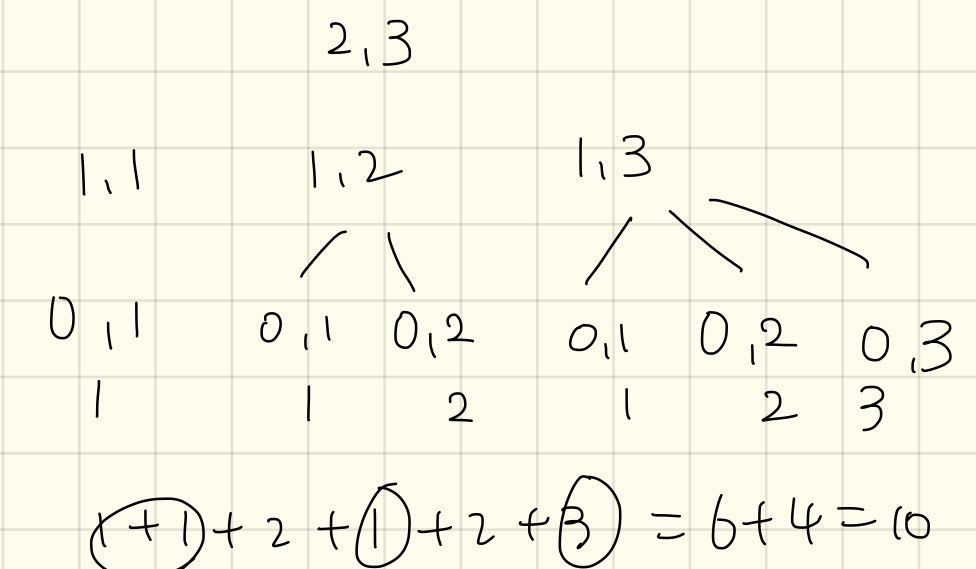 2,3
1,1 1,2 1,3
0,1 0,1 0,2 0,1 0,2 0,3
1 1 2 1 2 3
1+1+2+1+2+3=6+4=10